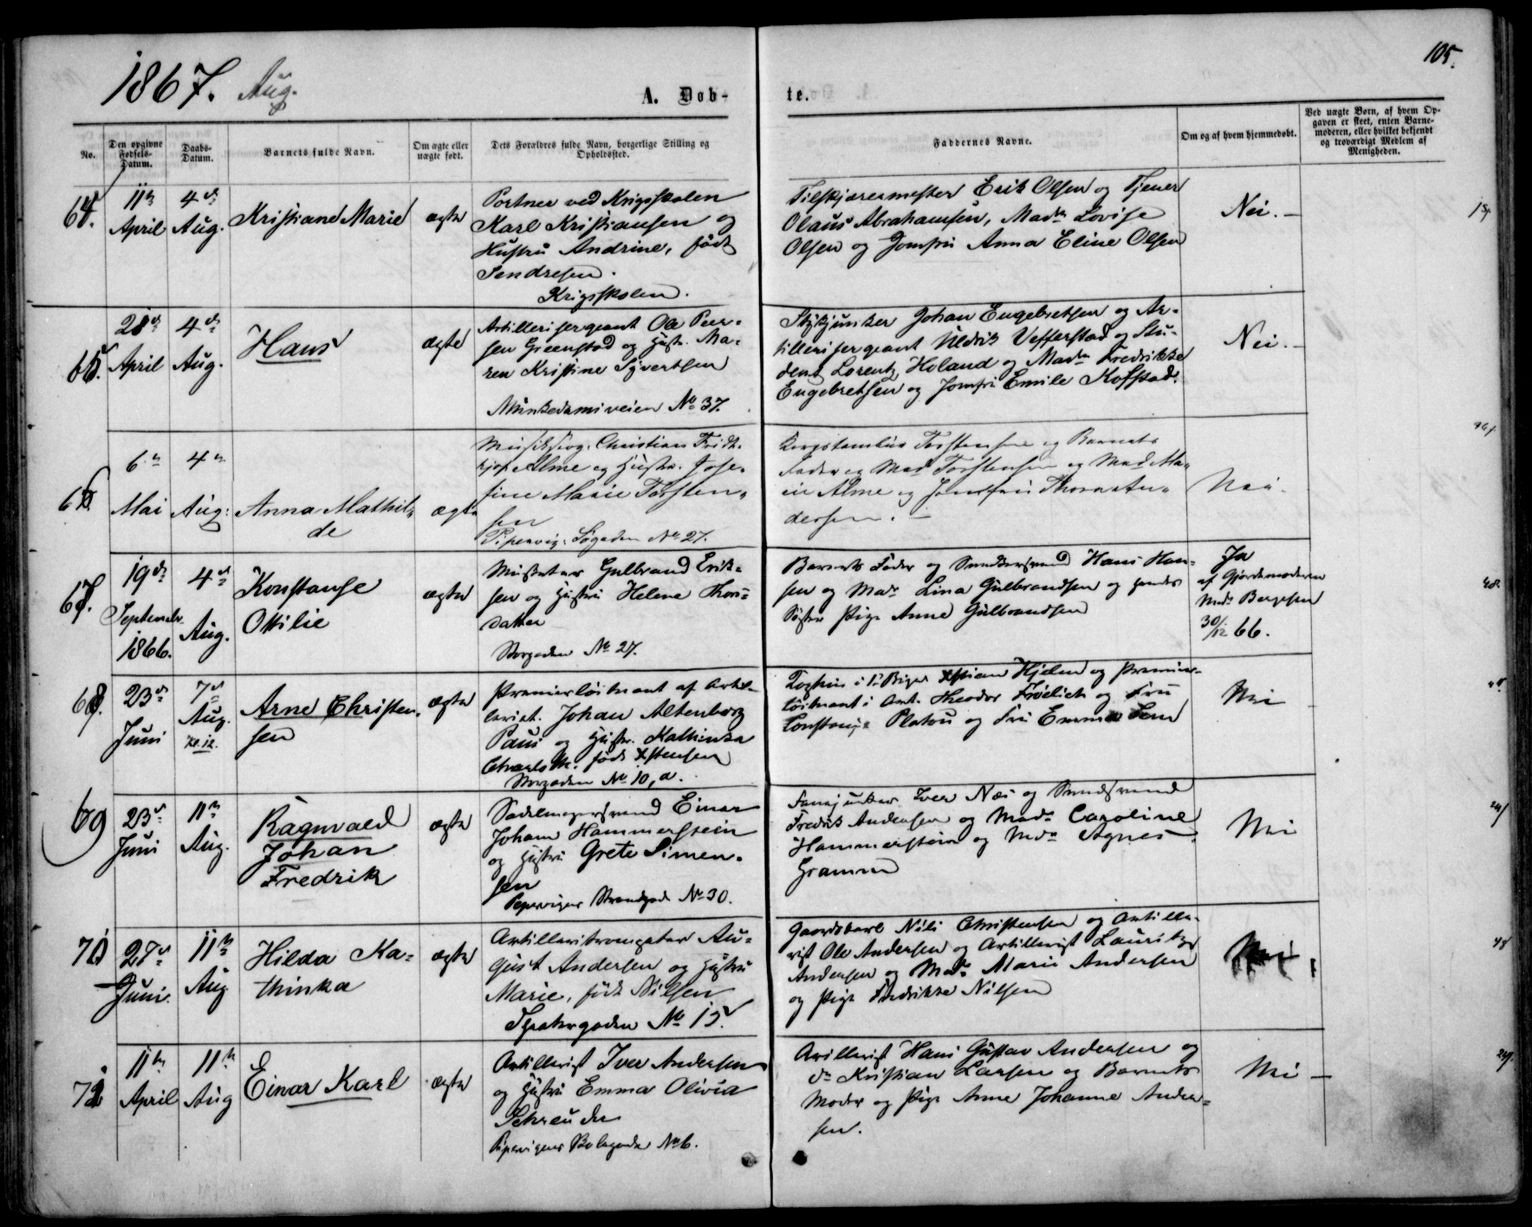 1867. Aug.
105.
A. Døb-
te.
No.
Den opgivne Fødsels-Datum.
Daabs-Datum.
Barnets fulde Navn.
Om ægte eller uægte født.
Dets Forældres fulde Navn, borgerlige Stilling og Opholdssted.
Faddernes Navne.
Om og af hvem hjemmedøbt.
Ved uægte Børn, af hvem Op-
gaven er skeet, enten Barne-
moderen, eller hvilket bekjendt
og troværdigt Medlem af
Menigheden.
64.
11te April
4de Aug.
Kristiane Marie
ægte
Portner ved Krigsskolen
Karl Kristiansen og
Hustru Andrine, født
Krigsskolen.
Tilskjærermester Erik Olsen og Tjener
Olaus Abrahamsen, Mad. Lovise
Olsen og Jomfru Anna Eline Olsen
Nei.
65.
April
4de Aug.
Hans
ægte
Artillerisergeant Ole Peer-
sen Greenstad og Hustr. Ma-
ren Kristine Syvertsen
Munkedamsveien No 37.
Stykjunker Johan Engebretsen og Ar-
tillerisergeant Uldrik Vefferstad og Stu-
dent Lorentz Holand og Madm Fredrikke
Engebretsen og Jomfr Emile Kofstad.
Nei.
66
6te Mai
4de Aug.
Anna Mathil-
de
ægte
Christian Fridt-
hjof Alme og Hustr. Jose-
fine Marie Torsten-
sen
Pipervig. Søgaden No 27.
Torstensen og Barnets
Fader og Mad Torstensen og Mad Ma-
rie Alme og Jomfru Thora An-
dersen.
Nei.
67.
19de September 1866.
4de Aug.
Konstanse
Otilie
ægte
Gulbrand Erik-
sen og Hustru Helene Thors-
datter
Storgaden No 27.
Barnets Fader og Snedkersvend Hans Han-
sen og Mad. Lina Gulbrandsen og hendes
Søster Pige Anne Gulbrandsen
Ja
af Gjordemoderen
Md. Bergesen
30/12 66.
68.
23de Juni
7de Aug.
Arne Christen-
sen
ægte
Premierløitnant af Artil-
leriet. Johan Altenborg
Paus og Hustr. Kathinka
Charlotte. født Xstensen
Storgaden No 10, a.
Xstian Hjelm og Premier-
løitnant i Art. Theodor Frølich og Fru
Constance Platou og Fru Emma
Nei
69
23de Juni
11te Aug.
Ragnvald
Johan
Fredrik
ægte
Sadelmagersvend Einar
Johan Hammerstein
og Hustru Grete Simen-
sen
Pipervigen Strandgad No 30.
Fanejunker Iver Næs og Smedsvend
Fredrik Andersen og Mad. Caroline
Hammerstein og Md. Agnes
Gramm
Nei
70
27de Juni
11te Aug
Hilda Ka-
thinka
ægte
Artilleritrompeter Au-
gust Andersen og Hustru
Marie, født Nilsen
Theatergaden No 15.
Gaardskarl Nils Christensen og Artille-
rist Ole Andersen og Artillerist Lauritz
Andersen og Mad. Marie Andersen
og Pige Fredrikke Nilsen
Nei
71
11te April
11te Aug
Einar Karl
ægte
Artillerist Iver Andersen
og Hustru Emma Olivia
Schreuder
No 6.
Artillerist Hans Gustav Andersen og
do Kristian Larsen og Barnets
Moder og Pige Anne Johanne Ander-
sen.
Nei